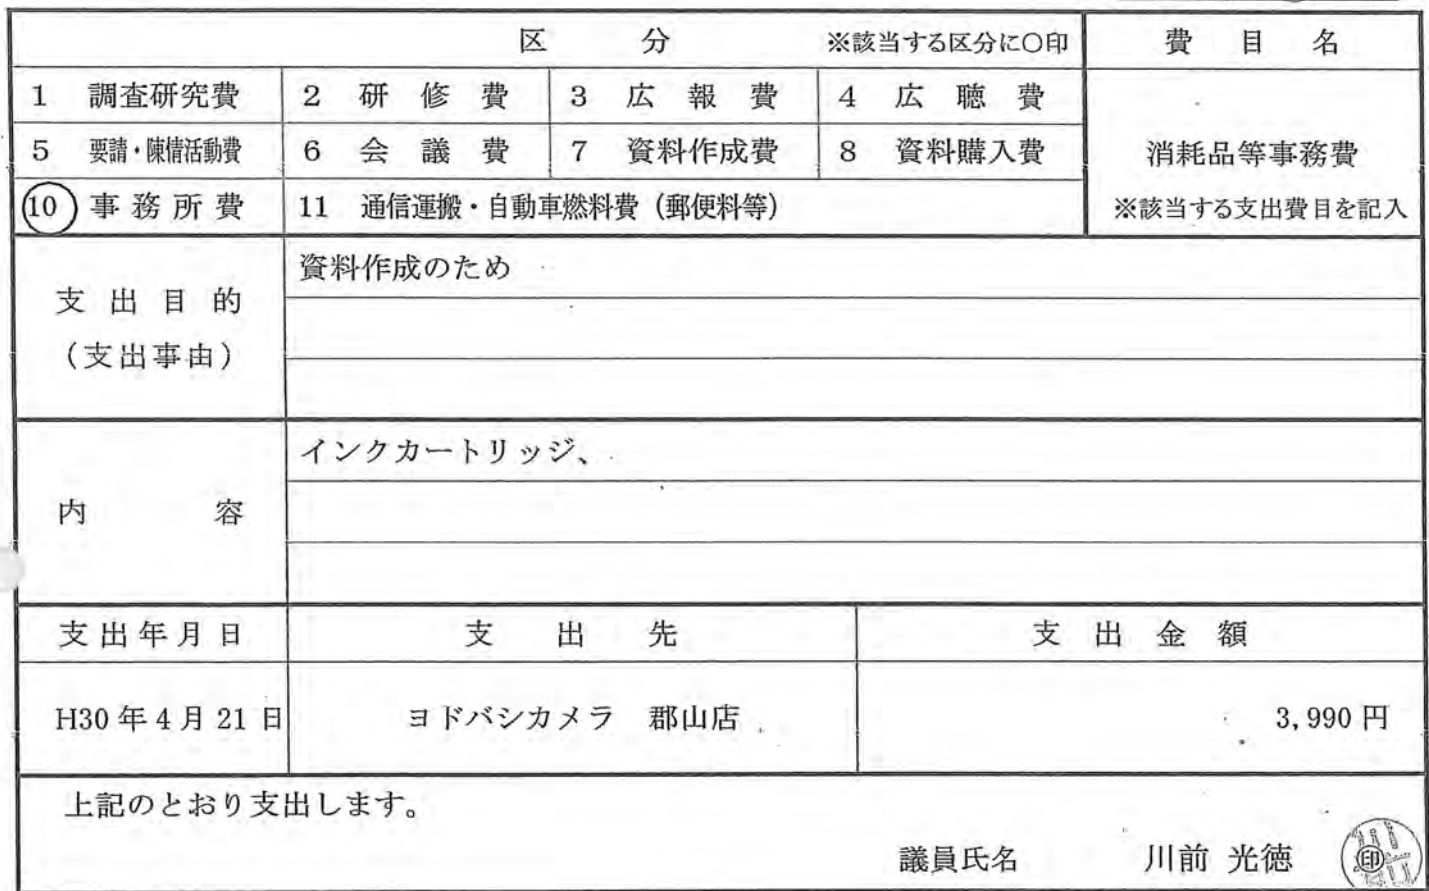 区 分 ※該当する区分に○印 費 目 名
1 調査研究費 2 研 修 費 3 広 報 費 4 広 聴 費
5 要請・陳情活動費 6 会 議 費 7 資料作成費 8 資料購入費 消耗品等事務費
10 事務所費 11 通信運搬・自動車燃料費（郵便料等） ※該当する支出費目を記入
資料作成のため
支 出 目 的
（支出事由）
インクカートリッジ、
内 容
支出年月日 支 出 先 支 出 金 額
H30 年 4 月 21 日 ヨドバシカメラ 郡山店 3,990 円
上記のとおり支出します。
議員氏名 川前 光徳 印